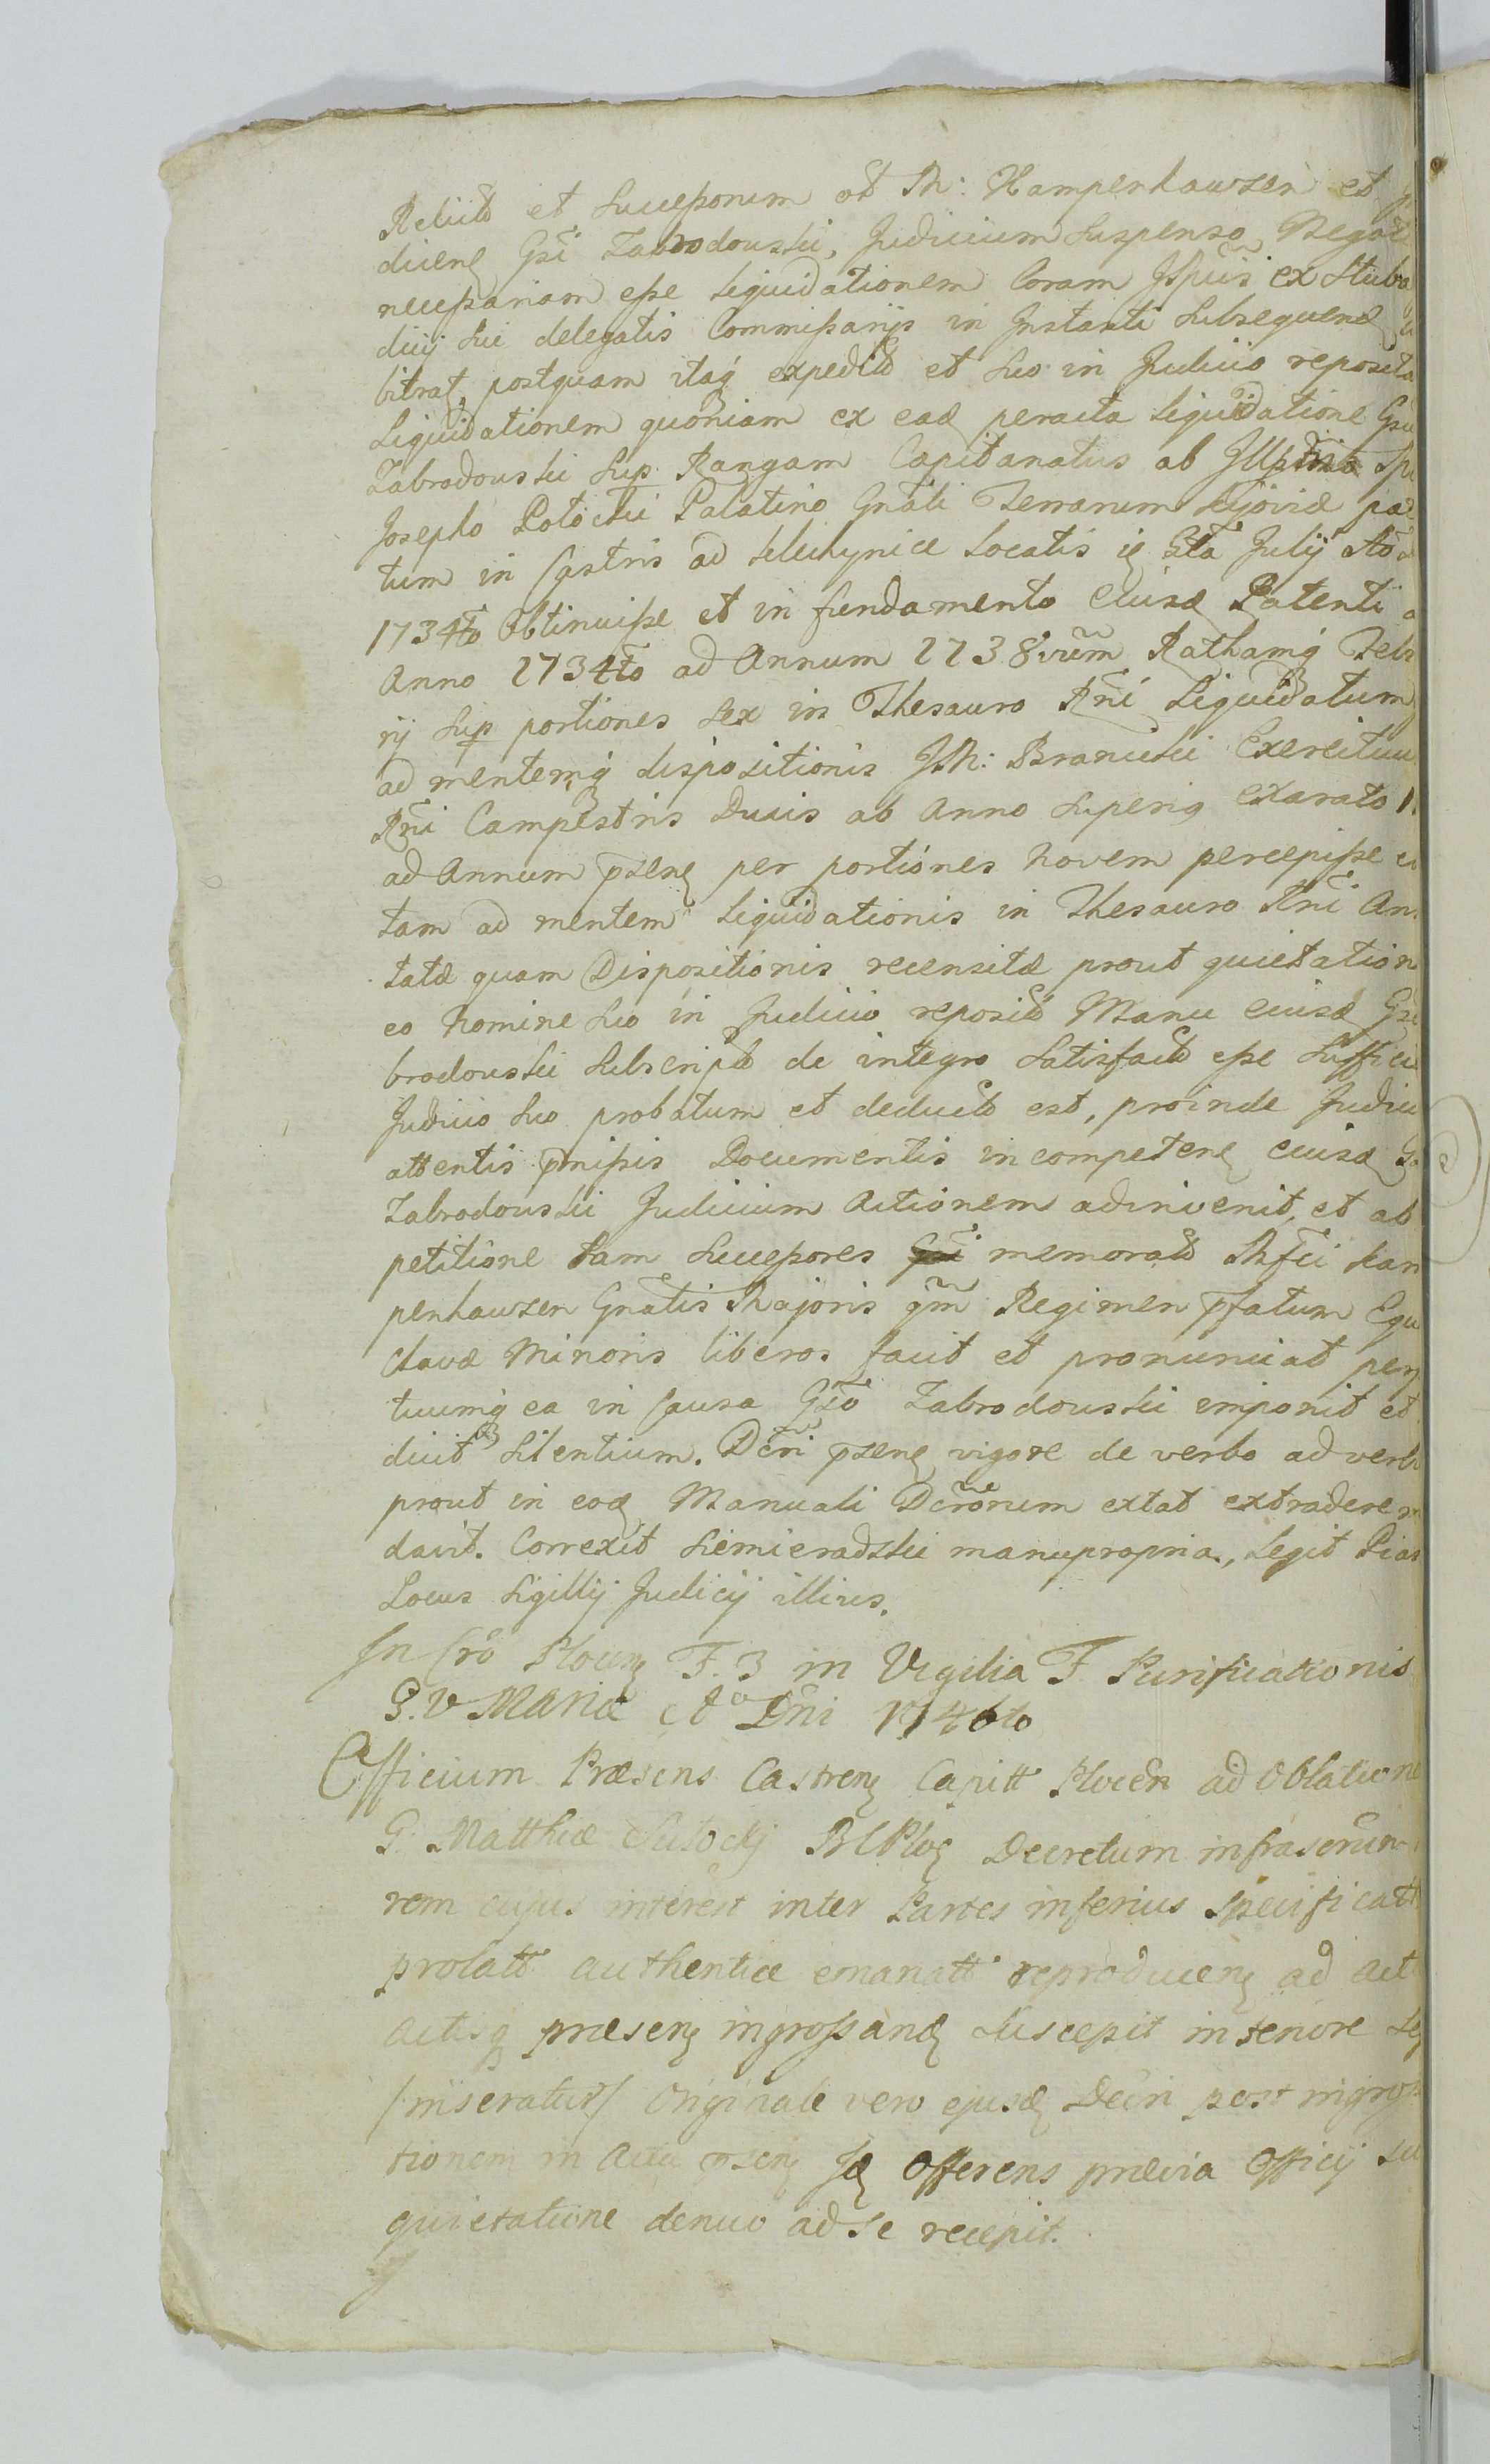 Relict et Successorum olt Mn: Kampenhawzen et
dicen Gsi Zabrodouski, Judicium suspenso Nego
necessariam esse liquidationem Coram Jspiis ex Stuba
dicij sui delegatis Commissarijs in Instanti subsequend
bitrat, postquam itaq expedit et suo in Judicio reposita
Liquidationem quoniam ex ead peracta liquidatione Gsu
Zabrodouski sup Rangam Capitanatus ab Spe
Josepho Potocki Palatino Gnali Terrarum Kijoviæ pa
tum in Castris ad locatis 5ta Julij Ao
1734to Obtinuisse et in fundamento eiusd Patenti a
Anno 1734to ad Annum 1738vum Rathamq
rij sup portiones sex in Thesauro Rni Liquidatum
ad mentemq dispositionis JM: Branicki Exercituu
Rni Campestris Ducis ab Anno superiq exarato
ad Annum psen per portiones novem percepisse
tam ad mentem liquidationis in Thesauro Rni An
tatæ quam Dispositionis recensitæ prout quietation
eo nomine suo in Judicio reposit Manu eiusd Gsi
brodouski subscript de integro satisfact esse suffici
Judicio suo probatum et deduct est, proinde Judiciu
attentis pmissis Documentis incompeten eiusd
Zabrodouski Judicium Actionem adinvenit, et ab
petitione tam Successores memorat Mfci Kam
penhawzen Gnalis Majoris qm Regimen pfatum Equ
clavæ Minoris liberos facit et pronunciat per
tuumq ea in Causa Gso Zabrodouski imponit et
dicit silentium. Dcri psen vigore de verbo ad verb
prout in eod Manuali Dcrorum extat extradere
davit. Correxit Siemieradzki manupropria., Legit
Locus Sigillij Judicij illius.
In Cro Plocen F. 3 in Vigilia F. Purificationis
B.V Mariæ Ao Dni 1746to
Officium Præsens Castren Capitt Plocen ad Oblatione
G. Matthiæ Decretum infrascrium
rem cujus interest inter Partes inferius specificatt
prolatt authentice emanatt reproducen ad act
actisq præsen ingrossand suscepit in tenore se
/inseratur/ Originale vero ejusd Decri post ingross
tionem in Acta psen Jd Offerens prævia Officij su
quietatione denuo ad se recepit.